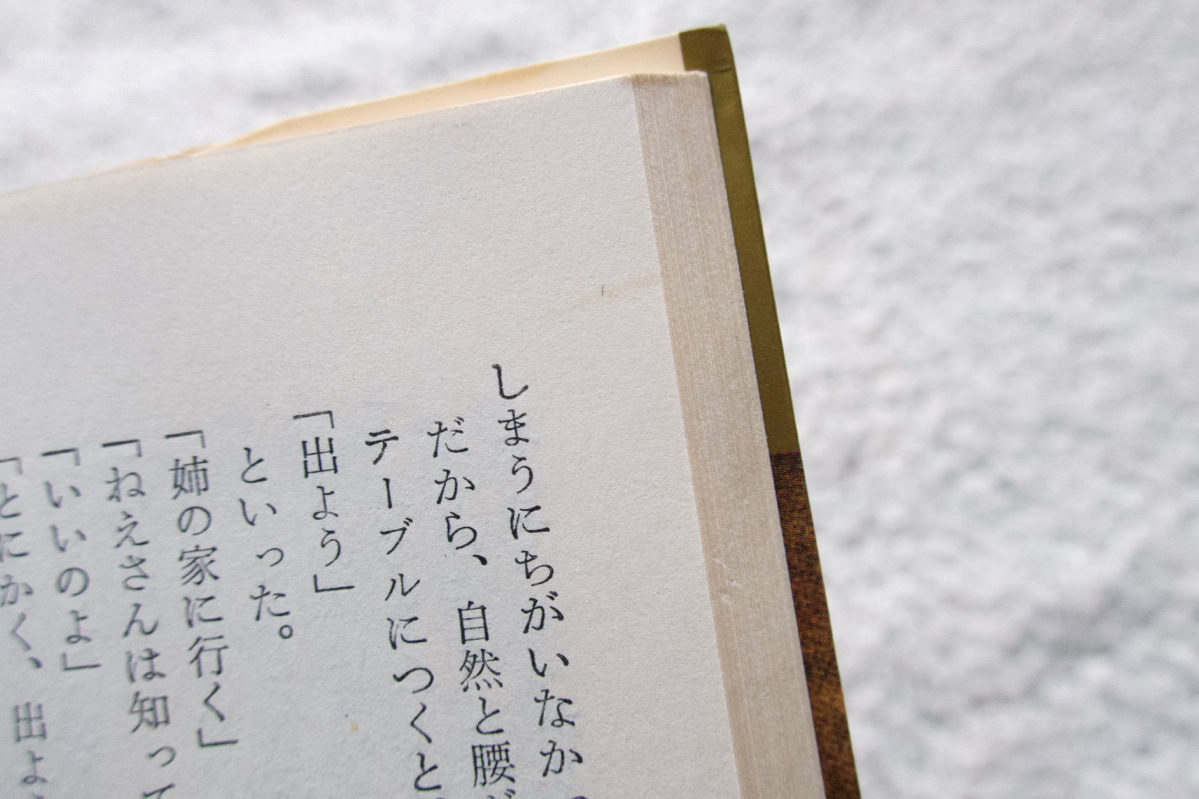 しまうにちがいなか
だから、自然と腰が
テーブルにつくと
「出よう」
といった。
「姉の家に行く」
「ねえさんは知って
「いいのよ」
「とにかく、出よ